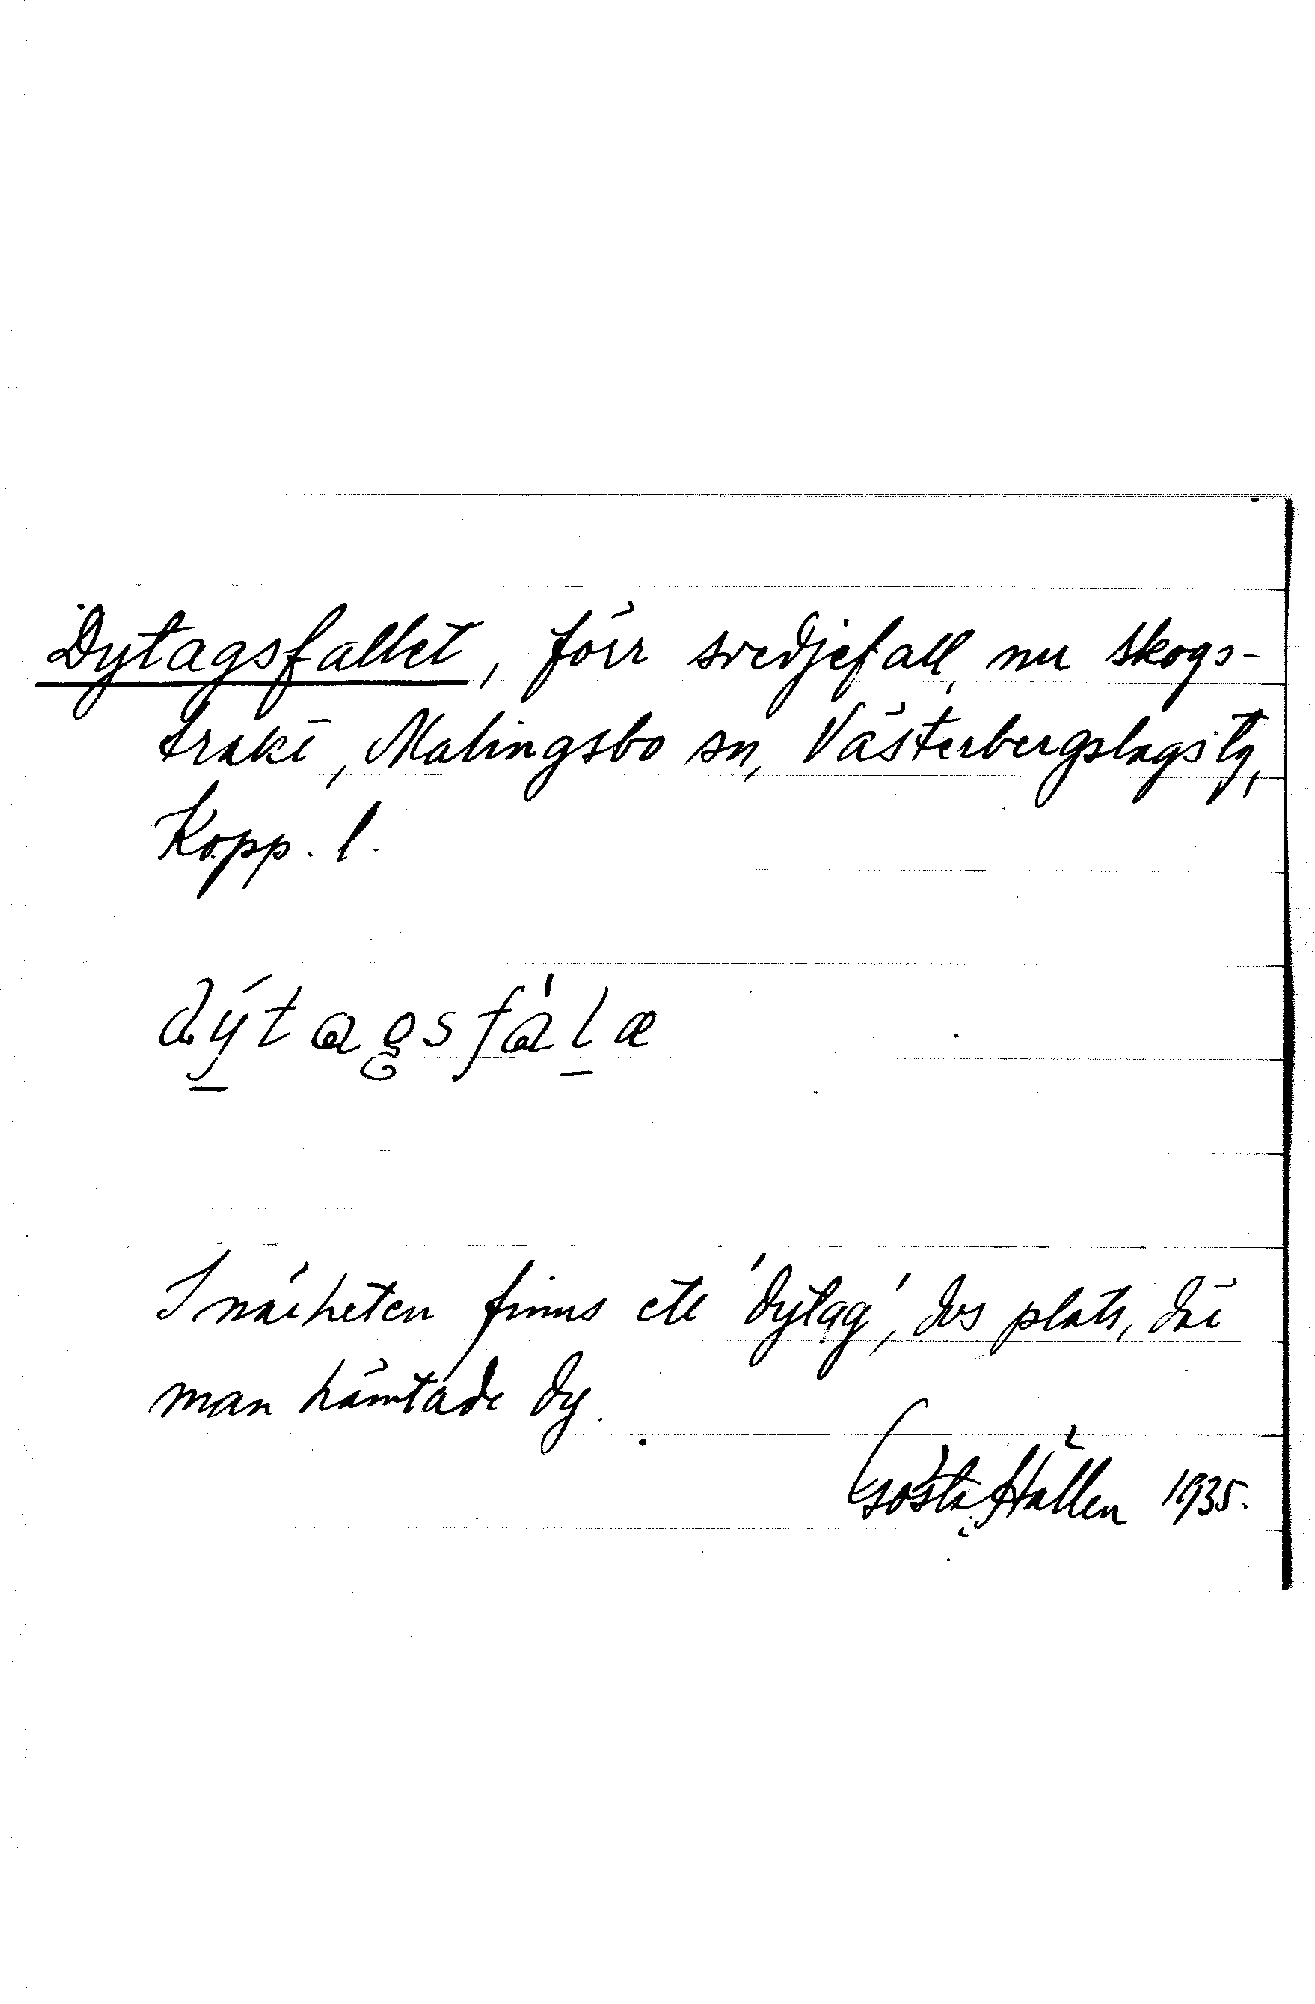 Dytagsfallet, förr svedjefall, nu skogs-
trakt, Malingsbo sn, Västerbergslags tg,
Kopp. l.
dýtagsfàlæ
I närheten finns ett 'dytag', dvs plats, där
man hämtade dy.
Gösta Hållen 1935.